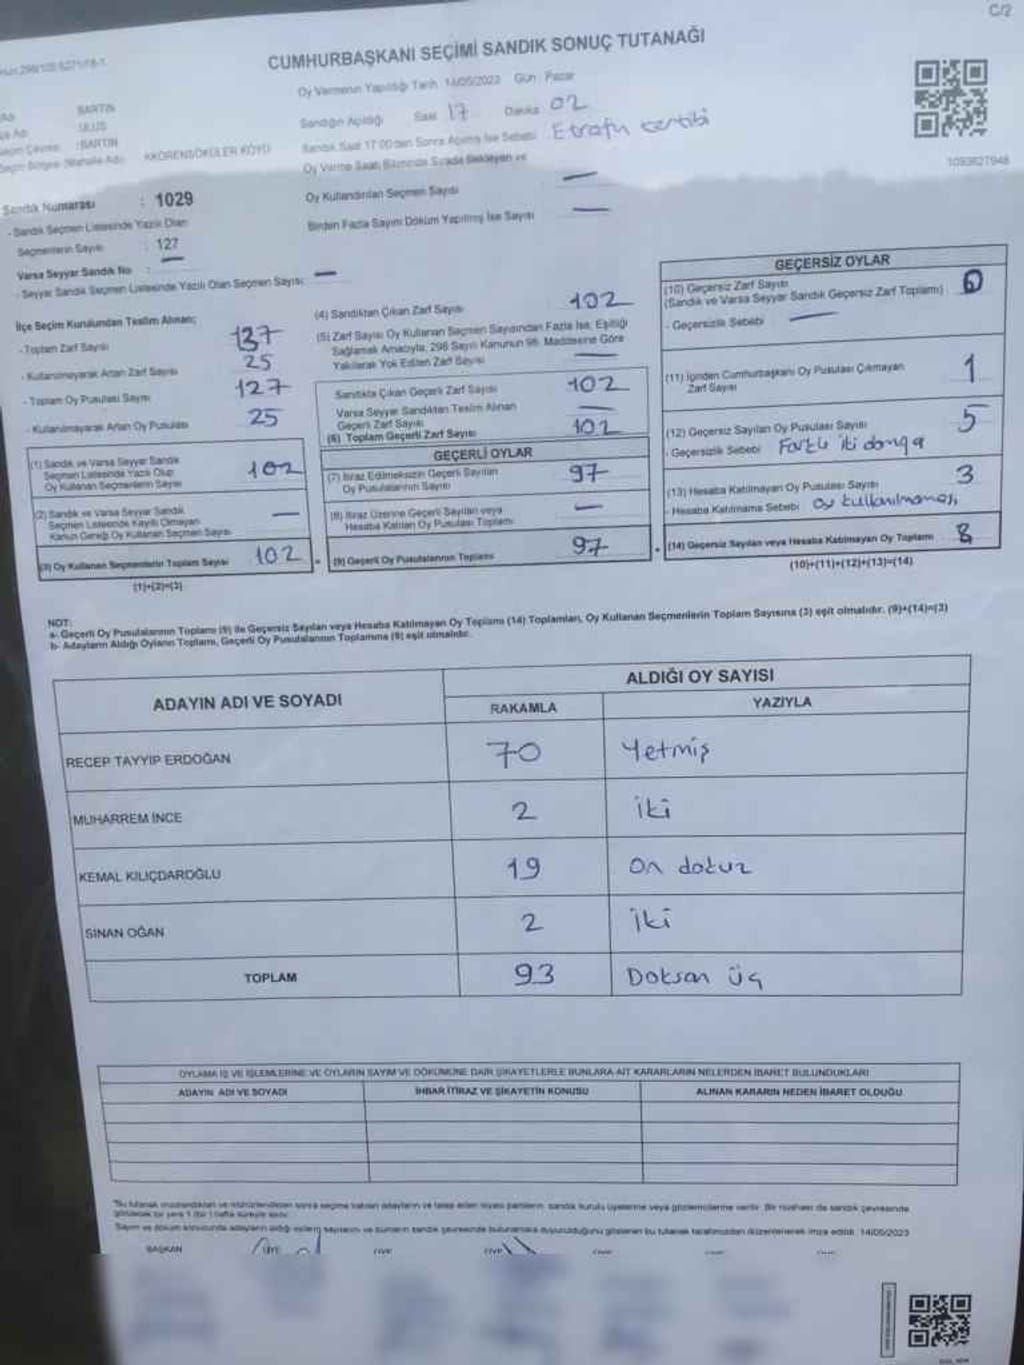 C/2
CUMHURBAŞKANI SEÇİMİ SANDIK SONUÇ TUTANAĞI
Oy Vermenin Yapıldığı Tarih 14/05/2023 Gün : Pazar
BARTIN
Sandığın Açıldığı Saat 17 Dakika 02
ULUS
Sandık Saat 17.00'den Sonra Açılmış İse Sebebi Etrafın tertibi
: BARTIN
KÖYÜ
Oy Verme Saati Bitiminde Sırada Bekleyen ve
Oy Kullandırılan Seçmen Sayısı —
Birden Fazla Sayım Döküm Yapılmış İse Sayısı —
1093627948
Sandık Numarası : 1029
- Sandık Seçmen Listesinde Yazılı Olan
Seçmenlerin Sayısı : 127
Varsa Seyyar Sandık No : —
- Seyyar Sandık Seçmen Listesinde Yazılı Olan Seçmen Sayısı: —
İlçe Seçim Kurulundan Teslim Alınan;
- Toplam Zarf Sayısı 137
- Kullanılmayarak Artan Zarf Sayısı 25
- Toplam Oy Pusulası Sayısı 127
- Kullanılmayarak Artan Oy Pusulası 25
(1) Sandık ve Varsa Seyyar Sandık
Seçmen Listesinde Yazılı Olup
Oy Kullanan Seçmenlerin Sayısı 102
(2) Sandık ve Varsa Seyyar Sandık
Seçmen Listesinde Kayıtlı Olmayan
Kanun Gereği Oy Kullanan Seçmen Sayısı —
(3) Oy Kullanan Seçmenlerin Toplam Sayısı 102
(1)+(2)=(3)
(4) Sandıktan Çıkan Zarf Sayısı 102
(5) Zarf Sayısı Oy Kullanan Seçmen Sayısından Fazla İse, Eşitliği
Sağlamak Amacıyla, 298 Sayılı Kanunun 98. Maddesine Göre
Yakılarak Yok Edilen Zarf Sayısı —
Sandıkta Çıkan Geçerli Zarf Sayısı 102
Varsa Seyyar Sandıktan Teslim Alınan
Geçerli Zarf Sayısı —
(6) Toplam Geçerli Zarf Sayısı 102
GEÇERLİ OYLAR
(7) İtiraz Edilmeksizin Geçerli Sayılan
Oy Pusulalarının Sayısı 97
(8) İtiraz Üzerine Geçerli Sayılan veya
Hesaba Katılan Oy Pusulası Toplamı —
(9) Geçerli Oy Pusulalarının Toplamı 97
GEÇERSİZ OYLAR
(10) Geçersiz Zarf Sayısı
(Sandık ve Varsa Seyyar Sandık Geçersiz Zarf Toplamı) 0
- Geçersizlik Sebebi —
(11) İçinden Cumhurbaşkanı Oy Pusulası Çıkmayan
Zarf Sayısı 1
(12) Geçersiz Sayılan Oy Pusulası Sayısı 5
- Geçersizlik Sebebi Farklı iki damga
(13) Hesaba Katılmayan Oy Pusulası Sayısı 3
- Hesaba Katılmama Sebebi oy kullanılmaması
(14) Geçersiz Sayılan veya Hesaba Katılmayan Oy Toplamı 8
(10)+(11)+(12)+(13)=(14)
NOT:
a- Geçerli Oy Pusulalarının Toplamı (9) ile Geçersiz Sayılan veya Hesaba Katılmayan Oy Toplamı (14) Toplamları, Oy Kullanan Seçmenlerin Toplam Sayısına (3) eşit olmalıdır. (9)+(14)=(3)
b- Adayların Aldığı Oyların Toplamı, Geçerli Oy Pusulalarının Toplamına (9) eşit olmalıdır.
ADAYIN ADI VE SOYADI ALDIĞI OY SAYISI
RAKAMLA YAZIYLA
RECEP TAYYIP ERDOĞAN 70 Yetmiş
MUHARREM İNCE 2 iki
KEMAL KILIÇDAROĞLU 19 On dokuz
SİNAN OĞAN 2 iki
TOPLAM 93 Doksan üç
OYLAMA İŞ VE İŞLEMLERİNE VE OYLARIN SAYIM VE DÖKÜMÜNE DAİR ŞİKAYETLERLE BUNLARA AİT KARARLARIN NELERDEN İBARET BULUNDUKLARI
ADAYIN ADI VE SOYADI İHBAR İTİRAZ VE ŞİKAYETİN KONUSU ALINAN KARARIN NEDEN İBARET OLDUĞU
BAŞKAN ÜYE ÜYE ÜYE